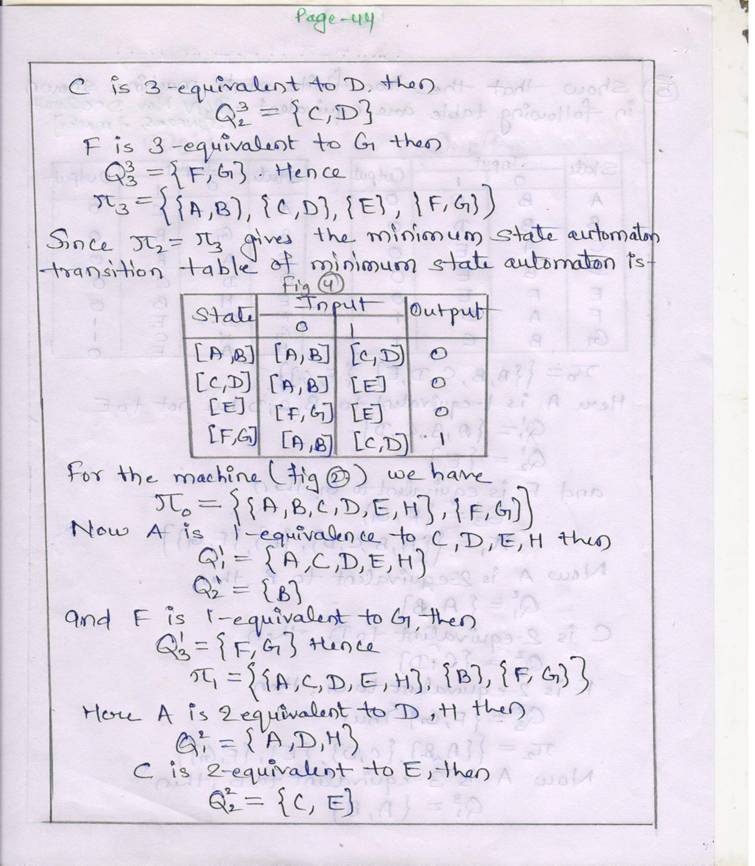 Page-44
C is 3-equivalent to D, then
Q₂³ = {C, D}
F is 3-equivalent to G then
Q₃³ = {F, G} . Hence
π₃ = {{A, B}, {C, D}, {E}, {F, G}}
Since π₂ = π₃ gives the minimum state automaton
transition table of minimum state automaton is-
Fig ④
State Input Output
0 1
[A,B] [A,B] [C,D] 0
[C,D] [A,B] [E] 0
[E] [F,G] [E] 0
[F,G] [A,B] [C,D] 1
For the machine (fig ②) we have
π₀ = {{A, B, C, D, E, H}, {F, G}}
Now A is 1-equivalence to C, D, E, H then
Q₁¹ = {A, C, D, E, H}
Q₂¹ = {B}
and F is 1-equivalent to G, then
Q₃¹ = {F, G} Hence
π₁ = {{A, C, D, E, H}, {B}, {F, G}}
Here A is 2 equivalent to D, H, then
Q₁² = {A, D, H}
C is 2-equivalent to E, then
Q₂² = {C, E}